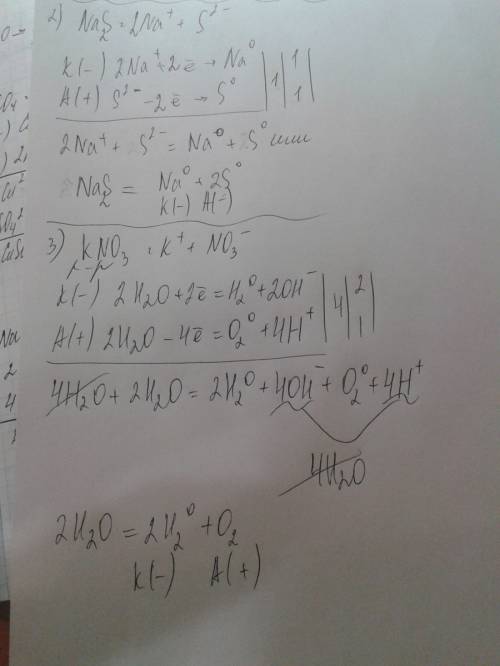 2) Na₂S = 2Na⁺ + S²⁻
K(-) 2Na⁺ + 2ē → Na⁰ | 1 | 1
A(+) S²⁻ - 2ē → S⁰ | 1
2Na⁺ + S²⁻ = Na⁰ + S⁰ или
Na₂S = Na⁰ + 2S⁰
K(-) A(-)
3) KNO₃ = K⁺ + NO₃⁻
р-р
K(-) 2H₂O + 2ē = H₂⁰ + 2OH⁻ | 4 | 2
A(+) 2H₂O - 4ē = O₂⁰ + 4H⁺ | 1
4H₂O + 2H₂O = 2H₂⁰ + 4OH⁻ + O₂⁰ + 4H⁺
4H₂O
2H₂O = 2H₂⁰ + O₂
K(-) A(+)